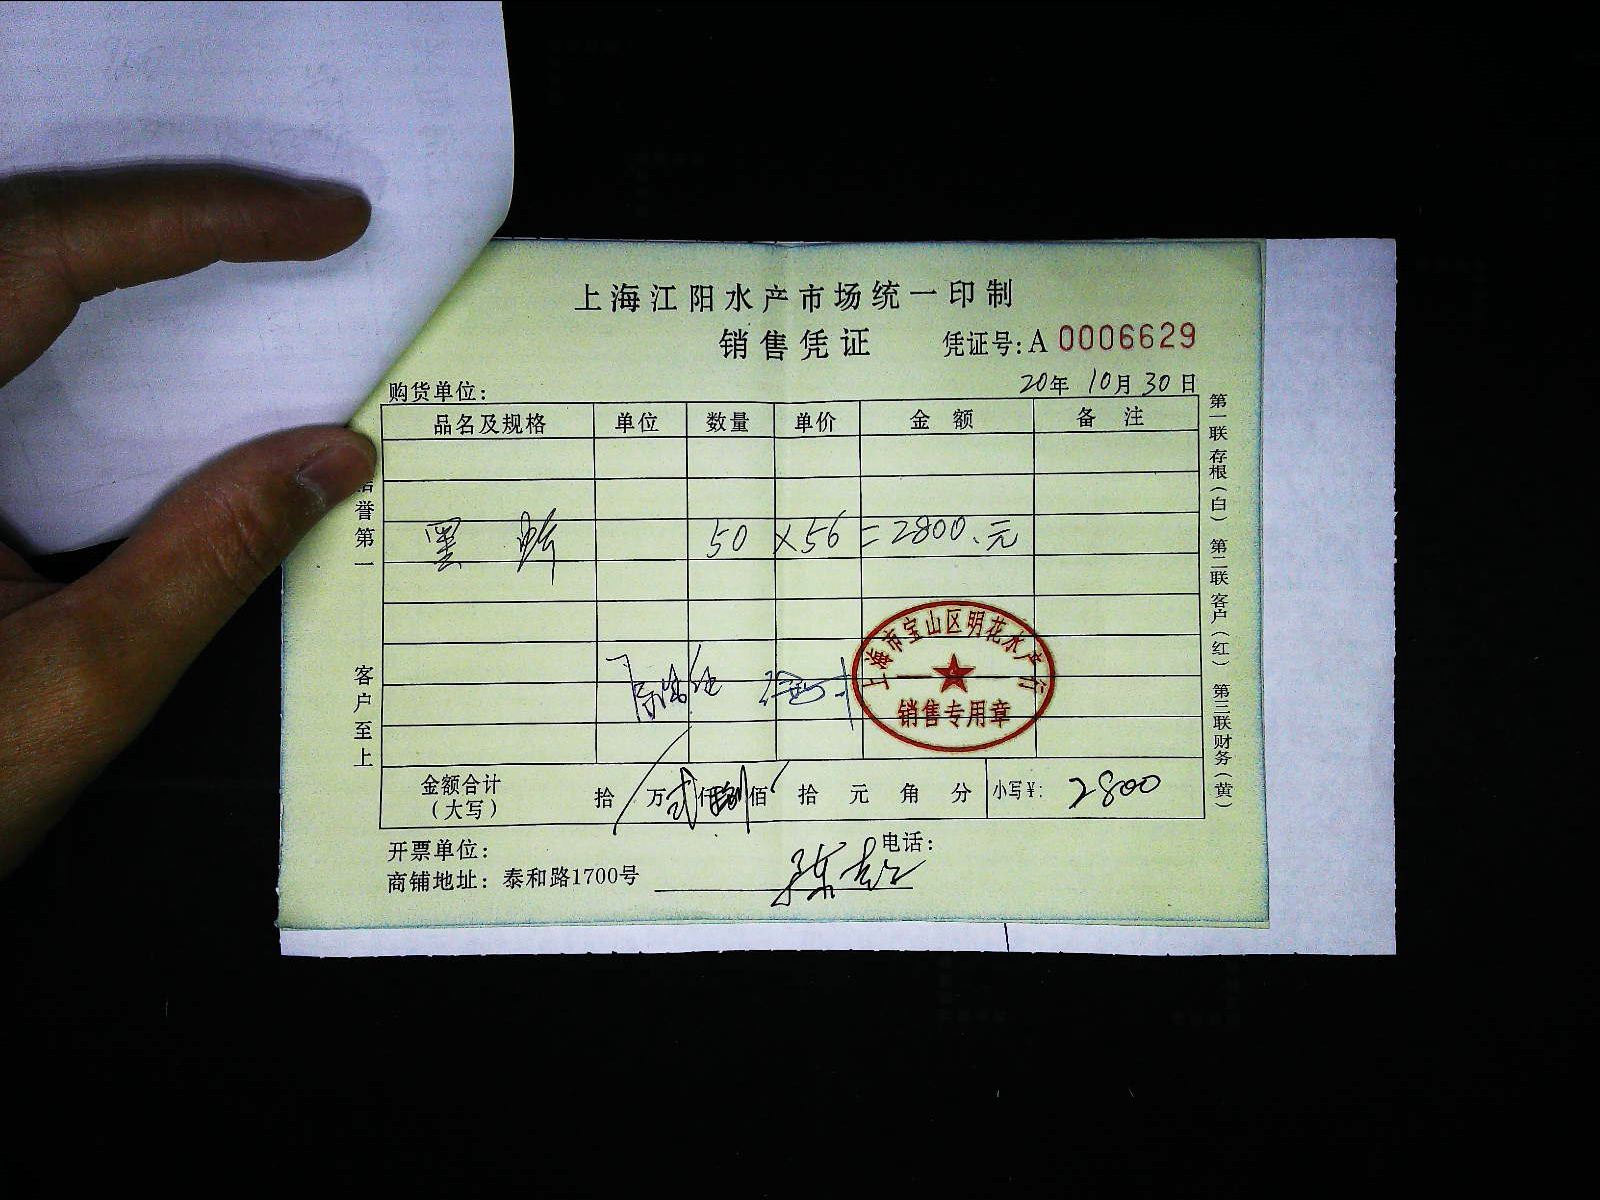 上海江阳水产市场统一印制
销售凭证
凭证号:A 0006629
购货单位:
20年 10月 30日
品名及规格 单位 数量 单价 金额 备注
黑 50 ×56 =2800.元
上海市宝山区明花水产行
销售专用章
金额合计
(大写)
拾 万 贰仟捌佰 拾 元 角 分 小写¥: 2800
开票单位:
电话:
商铺地址: 泰和路1700号
誉第一
客户至上
第一联存根(白) 第二联客户(红) 第三联财务(黄)